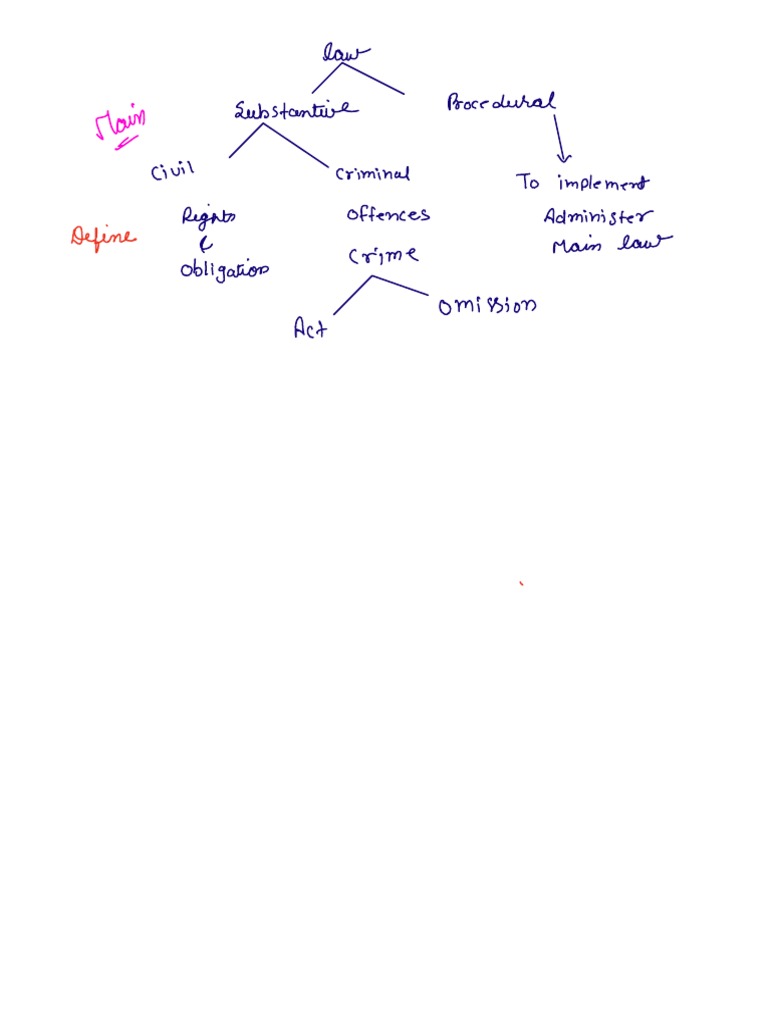 Law
Substantive Procedural
Main
Civil Criminal
To implement
Rights Offences Administer
Define & Crime Main law
Obligation
Act Omission